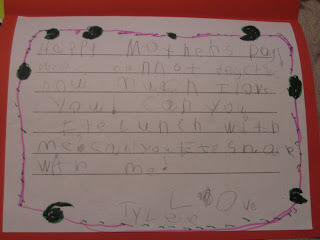 Happy Mothers Day!
cannot
how much I love
you! Can you
Ete lunch with
me? Can you Ete snake
with me!
LOve
TyLer